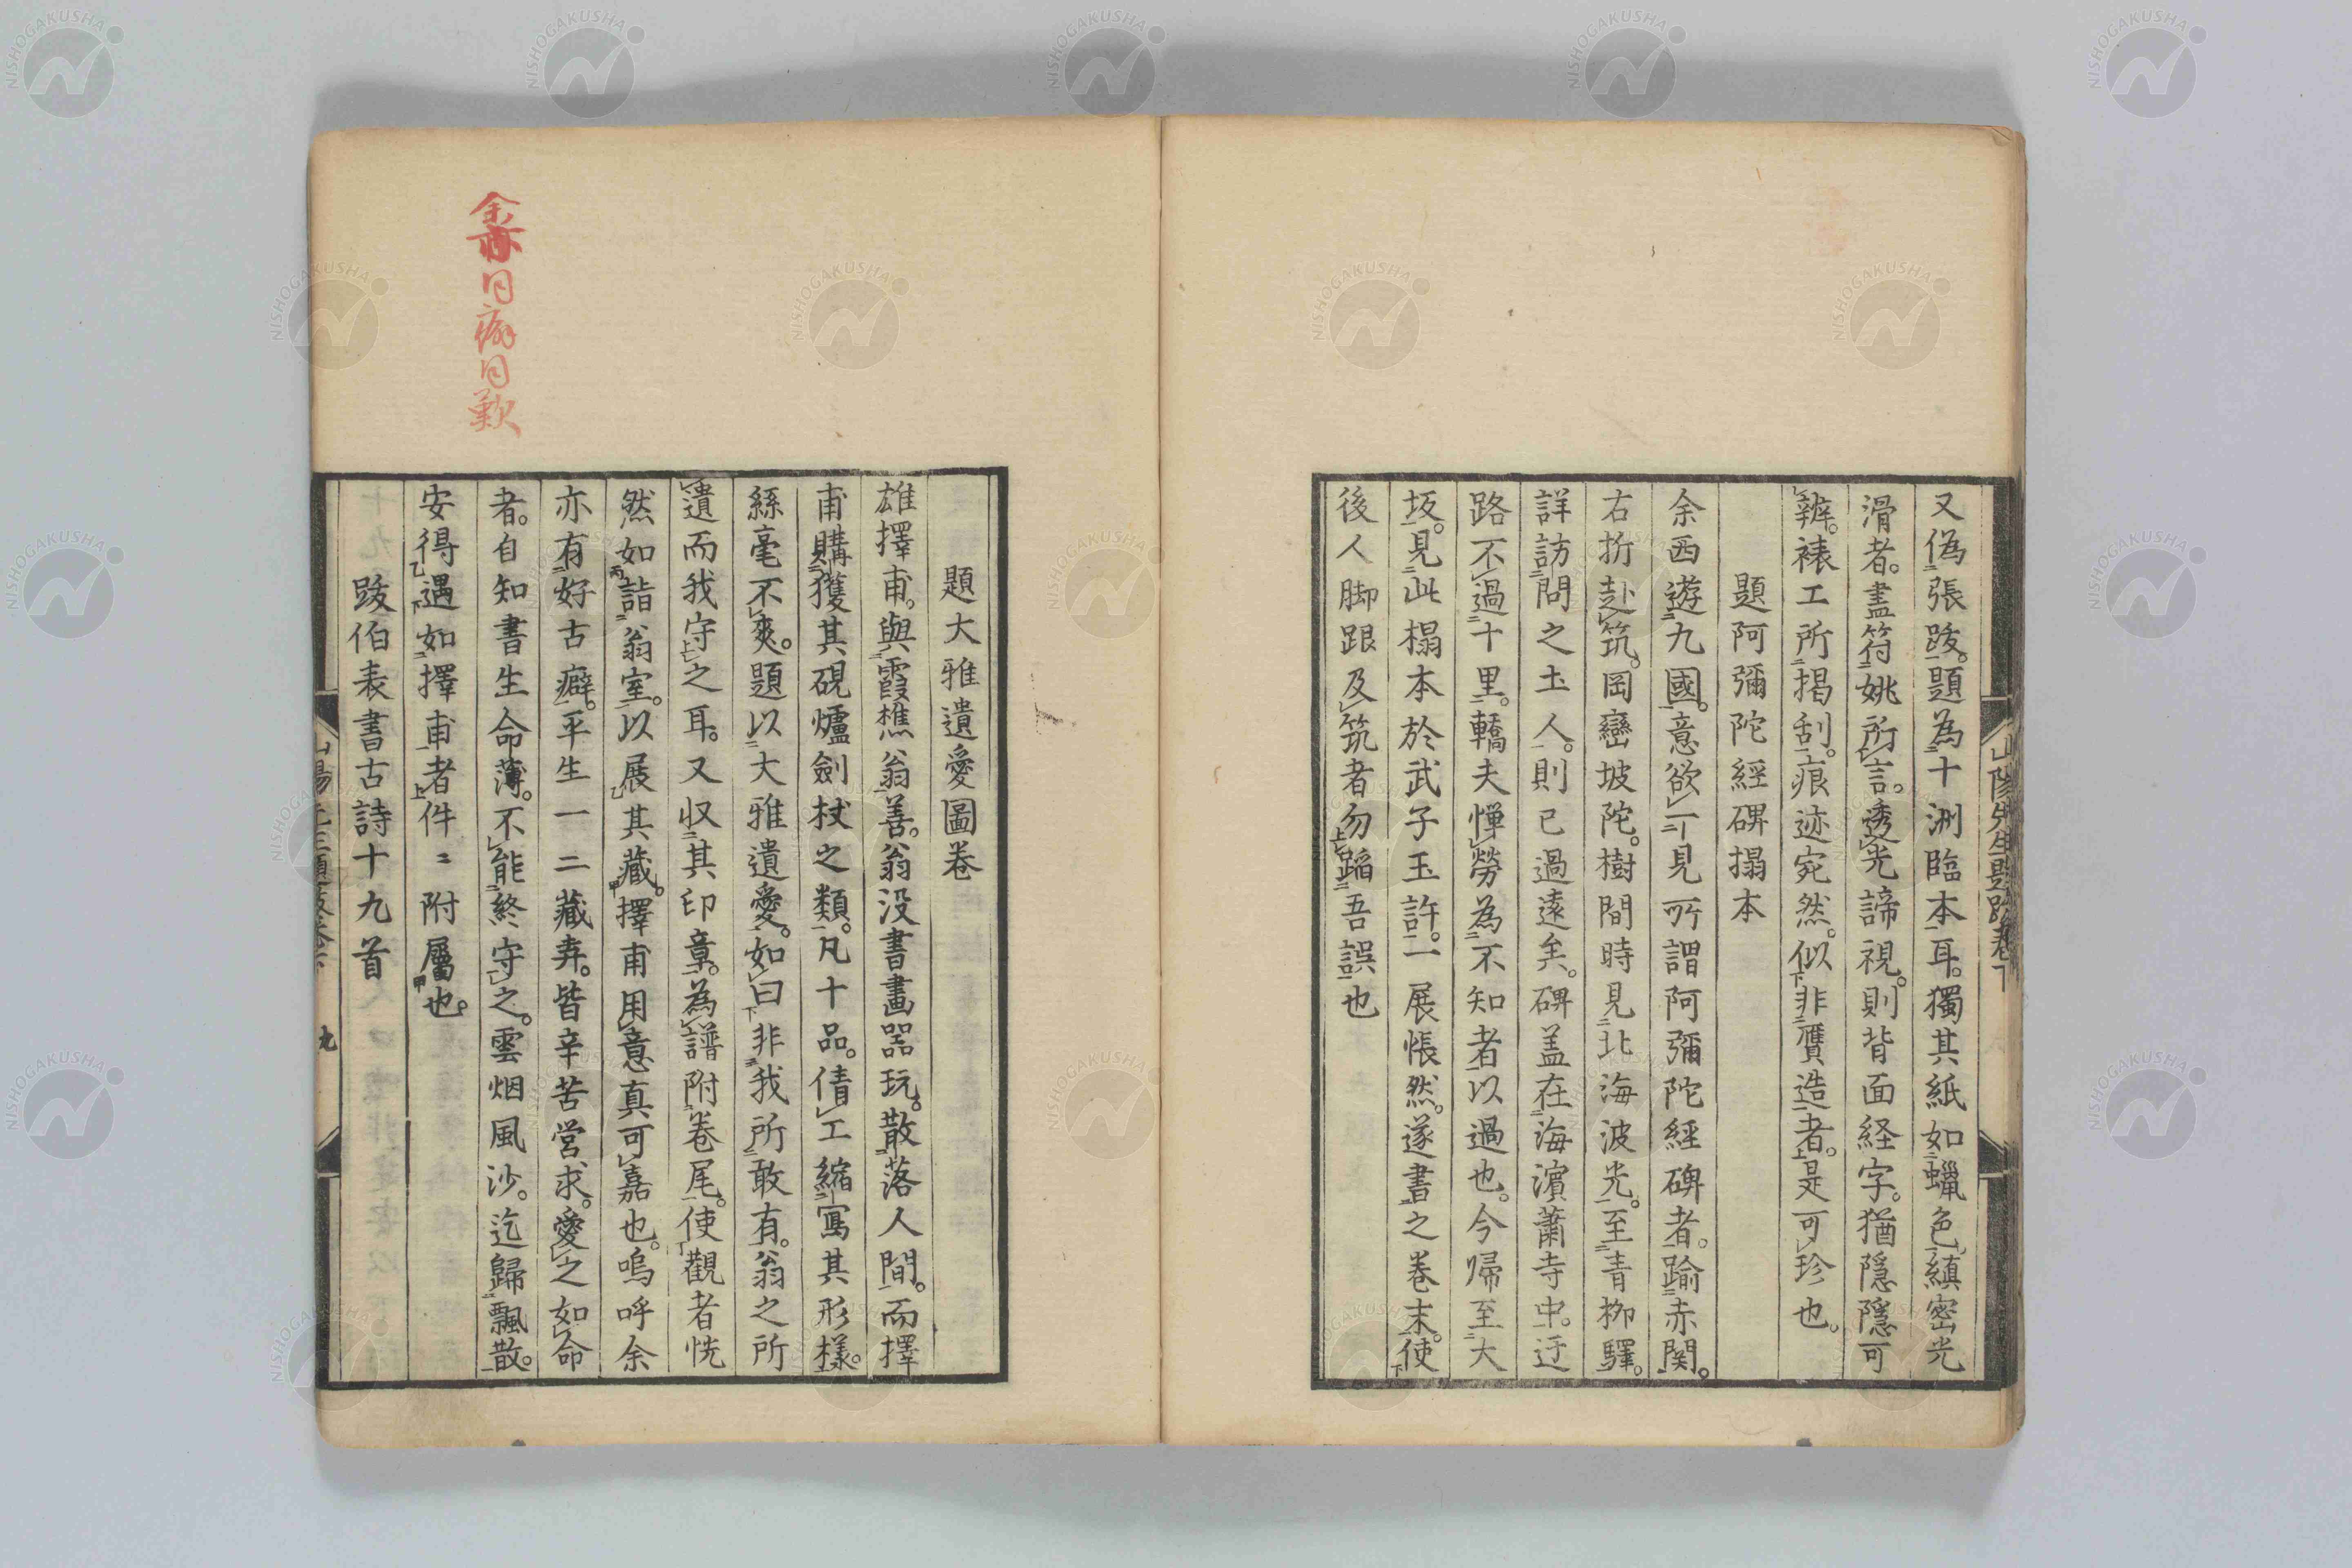 又偽張跋。題為十洲臨本耳。獨其紙如蠟色縝密光
滑者。盡符姚所言。透光諦視。則背面経字。猶隱隱可
辨。裱工所揭刮。痕迹宛然。似非贋造者。是可珍也。
題阿彌陀經碑搨本
余西遊九國。意欲一見所謂阿彌陀經碑者。踰赤関。
右折赴筑。岡巒坡陀。樹間時見北海波光。至青栁驛。
詳訪問之土人。則已過遠矣。碑盖在海濱蕭寺中。迂
路不過十里。轎夫憚勞。為不知者以過也。今帰至大
坂。見此榻本於武子玉許。一展悵然。遂書之巻末。使
後人脚跟及筑者勿蹈吾誤也
山陽先生題跋卷下
題大雅遺愛圖巻
雄擇甫。與霞樵翁善。翁没書畫器玩。散落人間。而擇
甫購獲其硯爐劍杖之類。凡十品。倩工縮寫其形樣。
絲毫不爽。題以大雅遺愛。如曰非我所敢有。翁之所
遺而我守之耳。又収其印章。為譜附巻尾。使觀者恍
然如詣翁室。以展其藏。擇甫用意真可嘉也。嗚呼余
亦有好古癖。平生一二藏弆。皆辛苦営求。愛之如命
者。自知書生命薄。不能終守之。雲烟風沙。迄歸飄散。
安得遇如擇甫者件〻附屬也。
跋伯表書古詩十九首
九
余亦同癖同歎
NISHOGAKUSHA